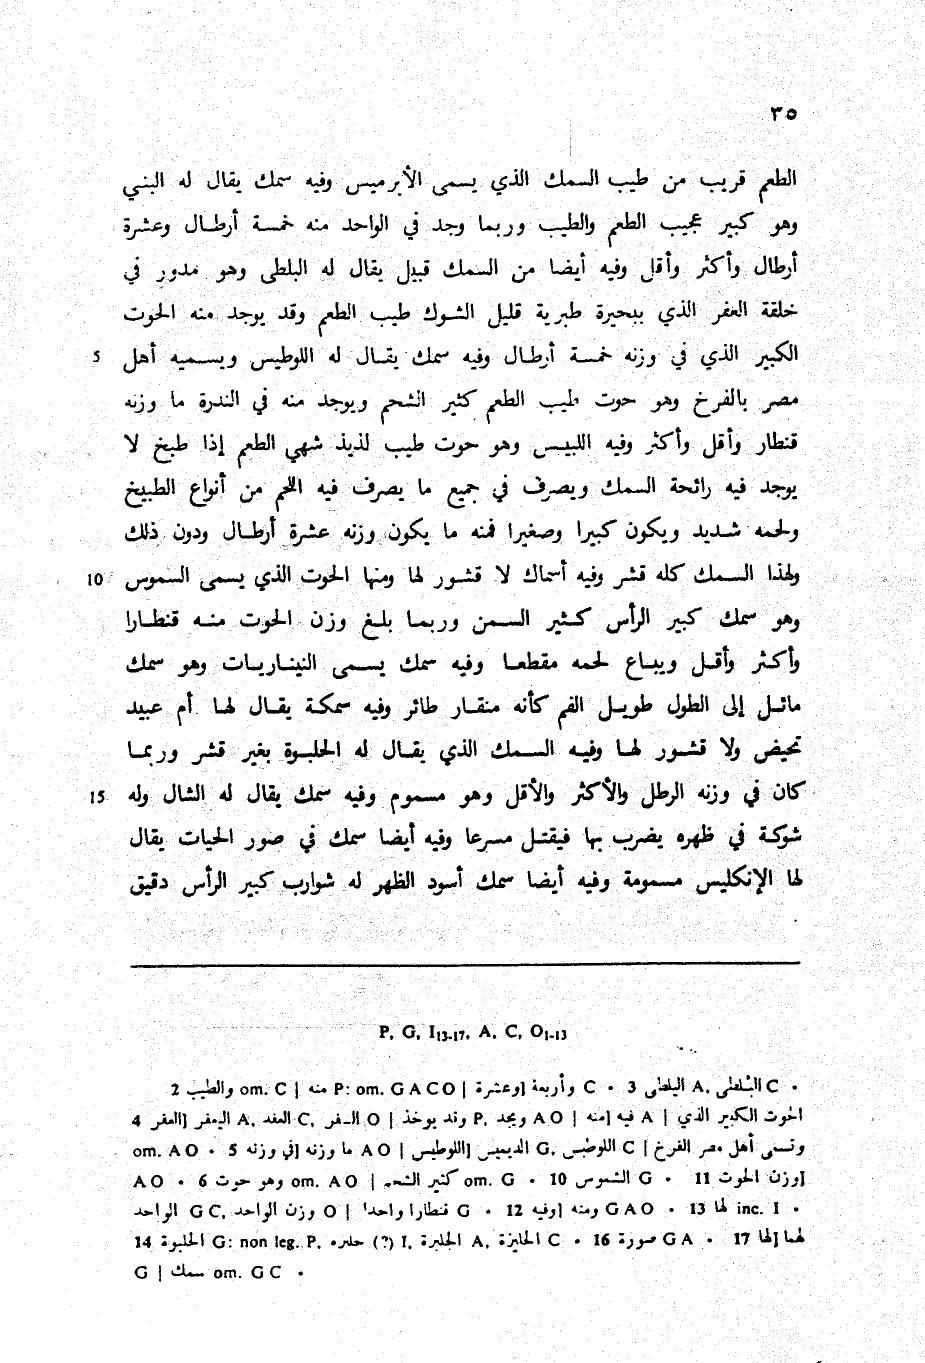 ٣٥
الطعم قريب من طيب السمك الذي يسمى الأبرميس وفيه سمك يقال له البني
وهو كبير عجيب الطعم والطيب وربما وجد في الواحد منه خمسة أرطال وعشرة
أرطال وأكثر وأقل وفيه أيضا من السمك قبيل يقال له البلطى وهو مدور في
خلقة العفر الذي ببحيرة طبرية قليل الشوك طيب الطعم وقد يوجد منه الحوت
5 الكبير الذي في وزنه خمسة أرطال وفيه سمك يقال له اللوطيس ويسميه أهل
مصر بالفرخ وهو حوت طيب الطعم كثير الشحم ويوجد منه في الندرة ما وزنه
قنطار وأقل وأكثر وفيه اللبيس وهو حوت طيب لذيذ شهي الطعم إذا طبخ لا
يوجد فيه رائحة السمك ويصرف في جميع ما يصرف فيه اللحم من أنواع الطبيخ
ولحمه شديد ويكون كبيرا وصغيرا فمنه ما يكون وزنه عشرة أرطال ودون ذلك
10 ولهذا السمك كله قشر وفيه أسماك لا قشور لها ومنها الحوت الذي يسمى السموس
وهو سمك كبير الرأس كثير السمن وربما بلغ وزن الحوت منه قنطارا
وأكثر وأقل ويباع لحمه مقطعا وفيه سمك يسمى النيناريات وهو سمك
مائل إلى الطول طويل الفم كأنه منقار طائر وفيه سمكة يقال لها أم عبيد
تحيض ولا قشور لها وفيه السمك الذي يقال له الحلبوة بغير قشر وربما
15 كان في وزنه الرطل والأكثر والأقل وهو مسموم وفيه سمك يقال له الشال وله
شوكة في ظهره يضرب بها فيقتل مسرعا وفيه أيضا سمك في صور الحيات يقال
لها الإنكليس مسمومة وفيه أيضا سمك أسود الظهر له شوارب كبير الرأس دقيق
P, G, I13-17, A, C, O1-13
2 والطيب om. C | منه P: om. G A C O | وعشرة] وأربعة C • 3 البلطى A, البُلطى C •
4 العفر] اليمفر A, العفد C, السفر O | وقد يوخذ P, ويجد A O | منه] فيه A | الحوت الكبير الذي
om. A O • 5 في وزنه] ما وزنه A O | اللوطيس] الديبيس G, اللوطبس C | وتسمى أهل مصر الفرخ
A O • 6 وهو حوت om. A O | كثير الشحم om. G • 10 الشموس G • 11 وزن الحوت]
الواحد G C, وزن الواحد O | قنطارا واحدا G • 12 وفيه] ومنه G A O • 13 لها inc. I •
14 الحلبوة G: non leg. P, حلبره (?) I, الحلبرة A, الحليزة C • 16 صورة G A • 17 لها] لهما
G | سمك om. G C •